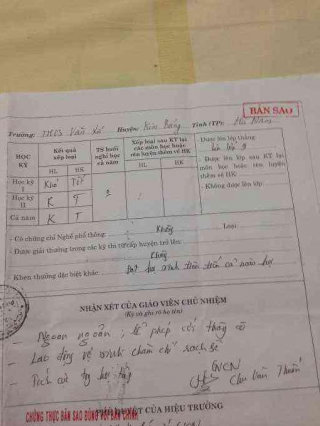 BẢN SAO
Trường: THCS Văn Xá Huyện: Kim Bảng Tỉnh (TP): Hà Nam
HỌC KỲ
Kết quả xếp loại
HL HK
TS buổi nghỉ học cả năm
Xếp loại sau KT lại các môn học hoặc rèn luyện thêm về HK
HL HK
- Được lên lớp thẳng
lên lớp 9
- Được lên lớp sau KT lại môn học hoặc rèn luyện thêm về HK
- Không được lên lớp
Học kỳ I Khá Tốt
Học kỳ II K T
Cả năm K T
2
- Có chứng chỉ Nghề phổ thông: Không Loại
- Được giải thưởng trong các kỳ thi từ cấp huyện trở lên:
Không
- Khen thưởng đặc biệt khác: Đạt học sinh tiên tiến cả năm học
NHẬN XÉT CỦA GIÁO VIÊN CHỦ NHIỆM
(Ký và ghi rõ họ tên)
- Ngoan ngoãn, lễ phép với thầy cô
- Lao động vệ sinh chăm chỉ sạch sẽ
- Tích cực tự học tập
GVCN
Chu Văn Thuấn
CHỨNG THỰC BẢN SAO ĐÚNG VỚI BẢN CHÍNH
CỦA HIỆU TRƯỞNG